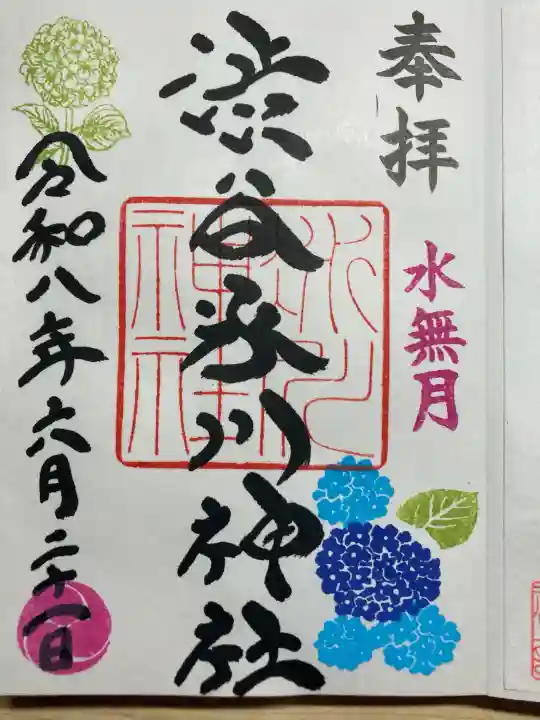 奉拝
水無月
渋谷氷川神社
令和八年六月二十一日